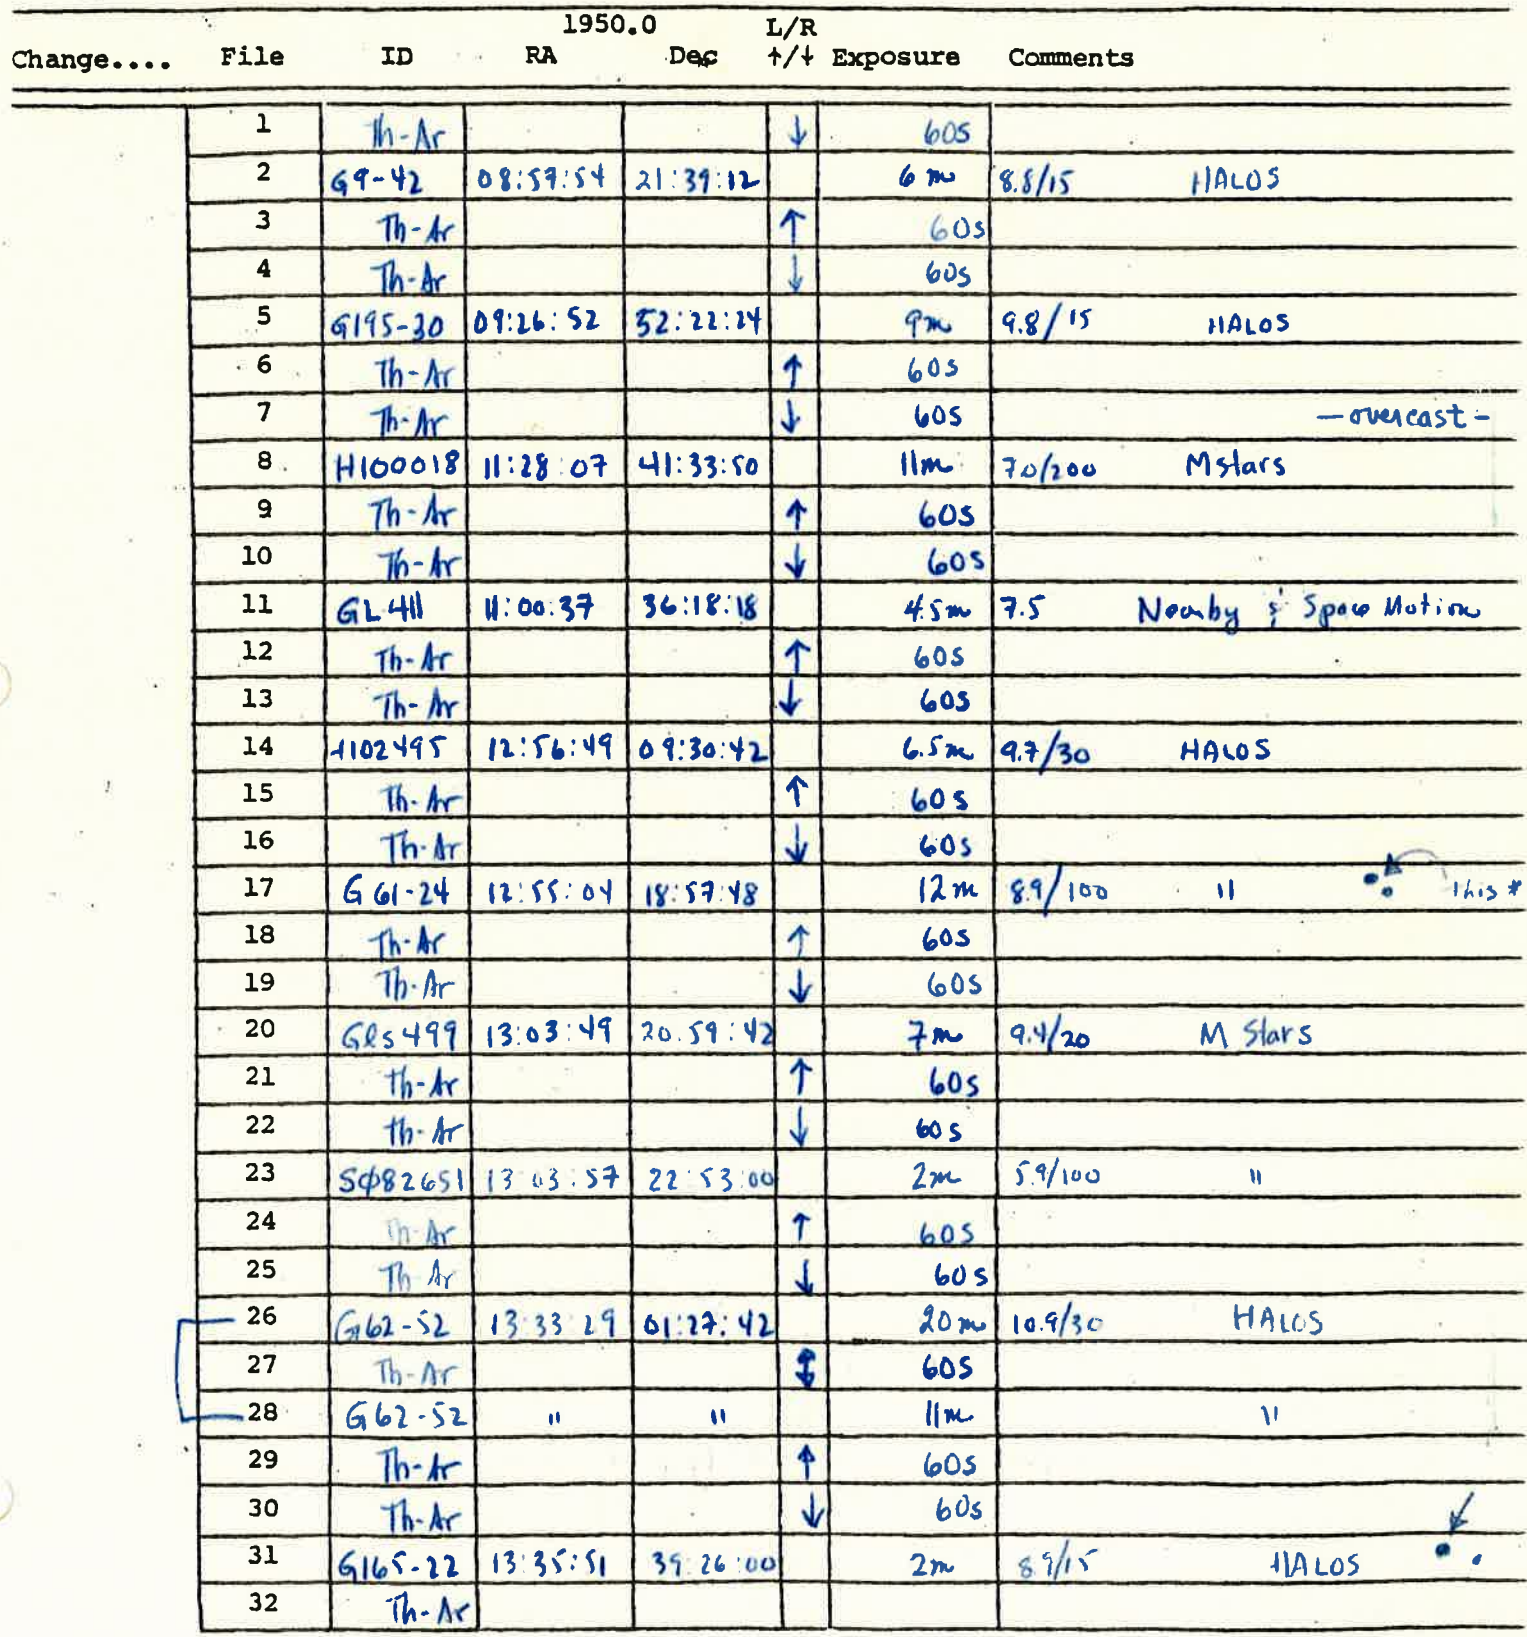 1950.0 L/R
Change.... File ID RA Dec ↑/↓ Exposure Comments
1 Th-Ar ↓ 60s
2 G9-42 08:57:54 21:39:12 6m 8.8/15 HALOS
3 Th-Ar ↑ 60s
4 Th-Ar ↓ 60s
5 G195-30 09:26:52 52:22:24 9m 9.8/15 HALOS
6 Th-Ar ↑ 60s
7 Th-Ar ↓ 60s —overcast-
8 H100018 11:28:07 41:33:50 11m 7.0/200 Mstars
9 Th-Ar ↑ 60s
10 Th-Ar ↓ 60s
11 GL411 11:00:37 36:18:18 4.5m 7.5 Nearby & Space Motion
12 Th-Ar ↑ 60s
13 Th-Ar ↓ 60s
14 H102495 12:56:49 09:30:42 6.5m 9.7/30 HALOS
15 Th-Ar ↑ 60s
16 Th-Ar ↓ 60s
17 G61-24 12:55:04 18:57:48 12m 8.9/100 " this *
18 Th-Ar ↑ 60s
19 Th-Ar ↓ 60s
20 Gls499 13:03:49 20:59:42 7m 9.4/20 M Stars
21 Th-Ar ↑ 60s
22 Th-Ar ↓ 60s
23 SΦ82651 13:03:57 22:53:00 2m 5.9/100 "
24 Th-Ar ↑ 60s
25 Th-Ar ↓ 60s
26 G62-52 13:33:29 01:27:42 20m 10.9/30 HALOS
27 Th-Ar ↕ 60s
28 G62-52 " " 11m "
29 Th-Ar ↑ 60s
30 Th-Ar ↓ 60s
31 G165-22 13:35:51 39:26:00 2m 8.9/15 HALOS
32 Th-Ar